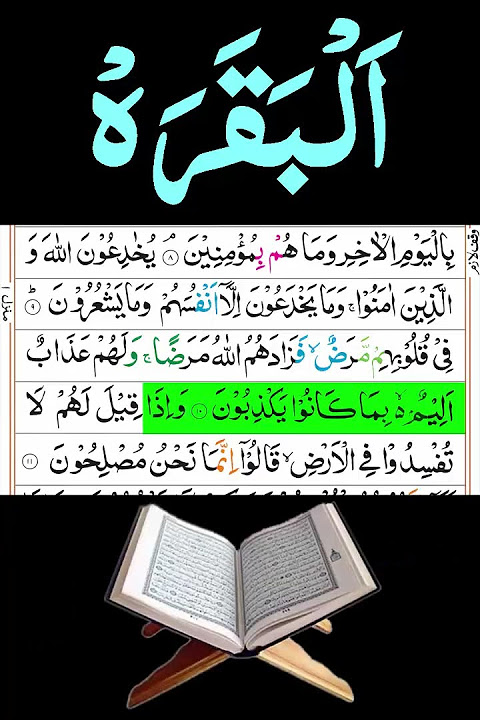 اَلْبَقَرَهْ
وقف لازم
بِالْيَوْمِ الْاٰخِرِ وَمَا هُمْ بِمُؤْمِنِيْنَ ۘ ۝٨ يُخٰدِعُوْنَ اللّٰهَ وَ
الَّذِيْنَ اٰمَنُوْا ۚ وَمَا يَخْدَعُوْنَ اِلَّاۤ اَنْفُسَهُمْ وَمَا يَشْعُرُوْنَ ۝٩
فِيْ قُلُوْبِهِمْ مَّرَضٌ ۙ فَزَادَهُمُ اللّٰهُ مَرَضًا ۚ وَلَهُمْ عَذَابٌ
اَلِيْمٌ ۢ ۙ بِمَا كَانُوْا يَكْذِبُوْنَ ۝١٠ وَاِذَا قِيْلَ لَهُمْ لَا
تُفْسِدُوْا فِي الْاَرْضِ ۙ قَالُوْۤا اِنَّمَا نَحْنُ مُصْلِحُوْنَ ۝١١
منزل ١